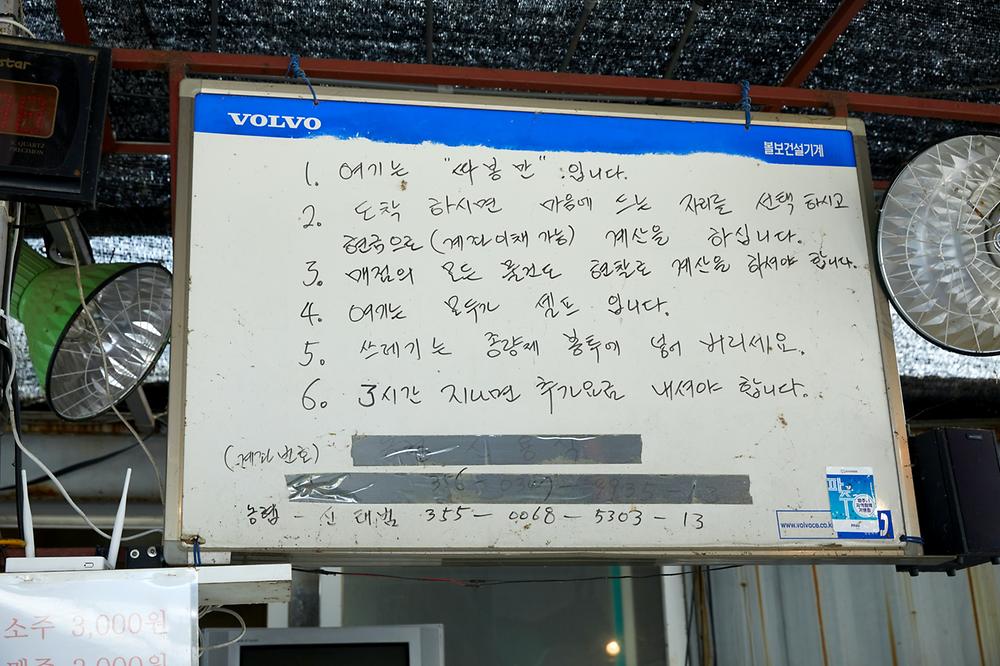 VOLVO
볼보건설기계
1. 여기는 "싸봉만" 입니다.
2. 도착 하시면 마음에 드는 자리를 선택 하시고
현금으로 (계좌이체 가능) 계산을 하십니다.
3. 매점의 모든 물건도 현찰로 계산을 하셔야 합니다.
4. 여기는 모두가 셀프 입니다.
5. 쓰레기는 종량제 봉투에 넣어 버리세요.
6. 3시간 지나면 추가요금 내셔야 합니다.
(계좌번호)
농협 - 신태범 355-0068-5303-13
www.volvoce.co.kr
QUARTZ
PRECISION
소주 3,000원
맥주 3,000원